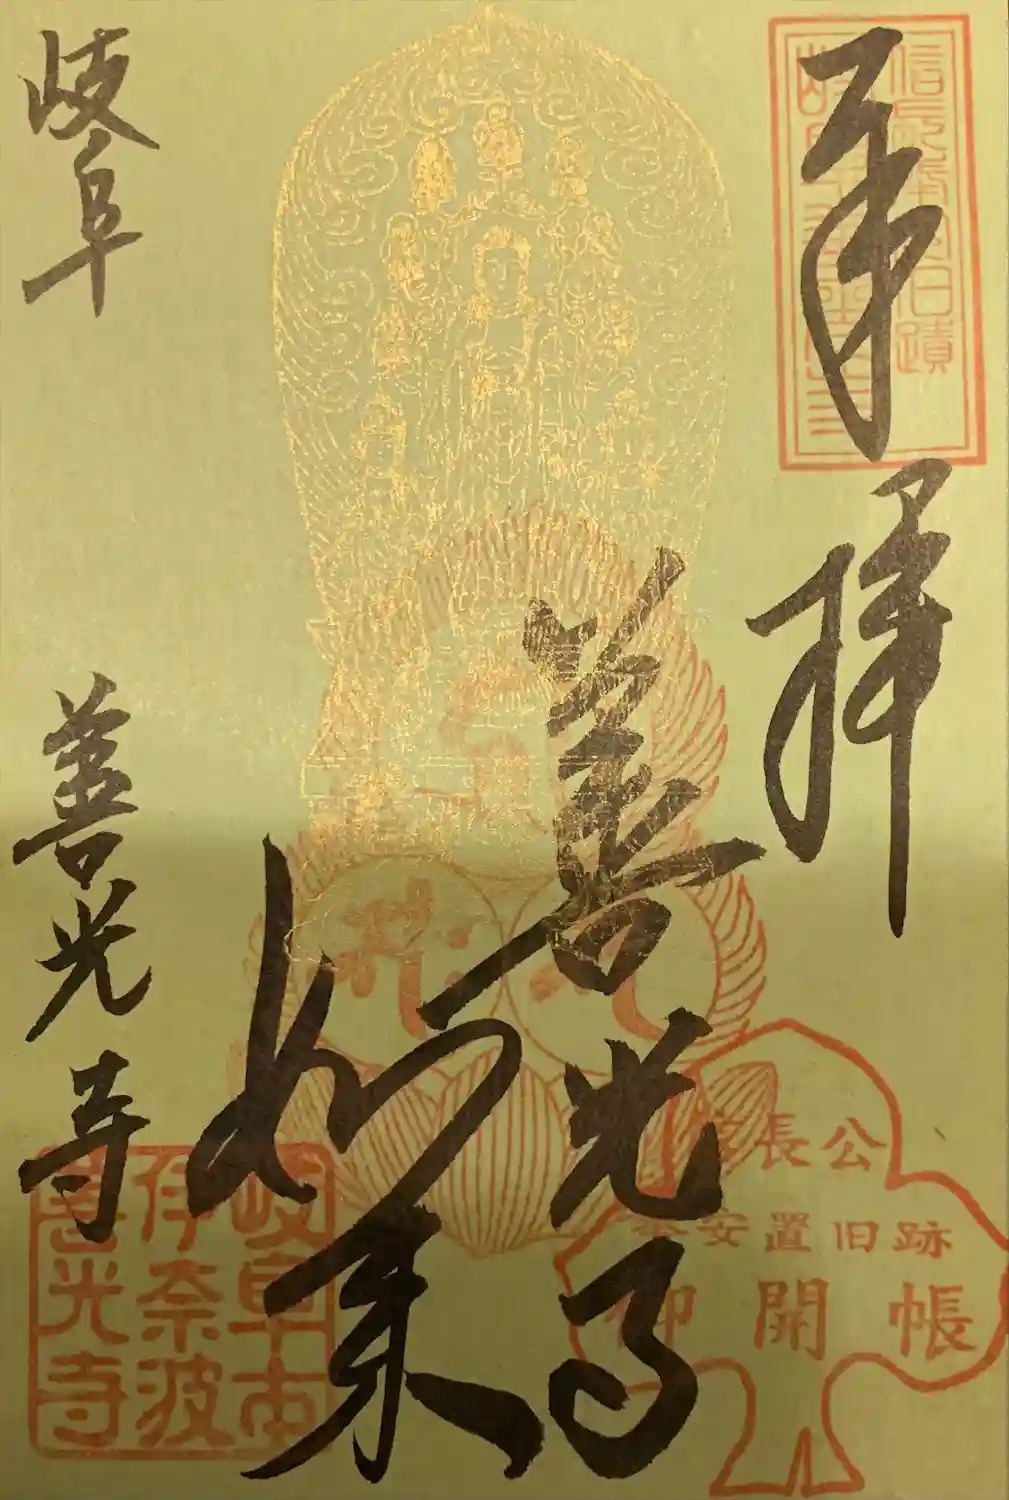 奉拝
信長公奉安旧蹟
善光寺
如来
岐阜
善光寺
長公
安置旧跡
御開帳
岐阜市
伊奈波
善光寺